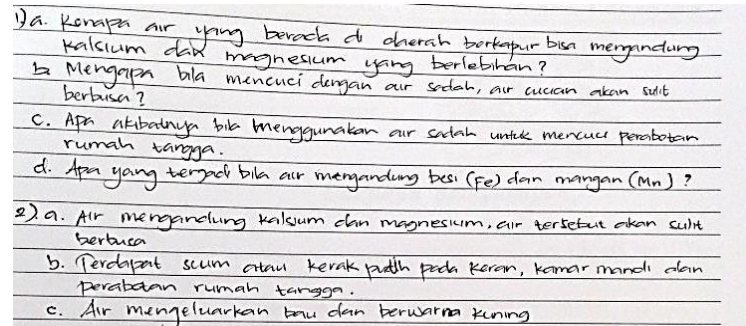 1) a. Kenapa air yang berada di daerah berkapur bisa mengandung
kalsium dan magnesium yang berlebihan?
b. Mengapa bila mencuci dengan air sadah, air cucian akan sulit
berbusa?
c. Apa akibatnya bila menggunakan air sadah untuk mencuci perabotan
rumah tangga.
d. Apa yang terjadi bila air mengandung besi (Fe) dan mangan (Mn)?
2). a. Air mengandung kalsium dan magnesium, air tersebut akan sulit
berbusa
b. Terdapat scum atau kerak putih pada keran, kamar mandi dan
perabotan rumah tangga.
c. Air mengeluarkan bau dan berwarna kuning